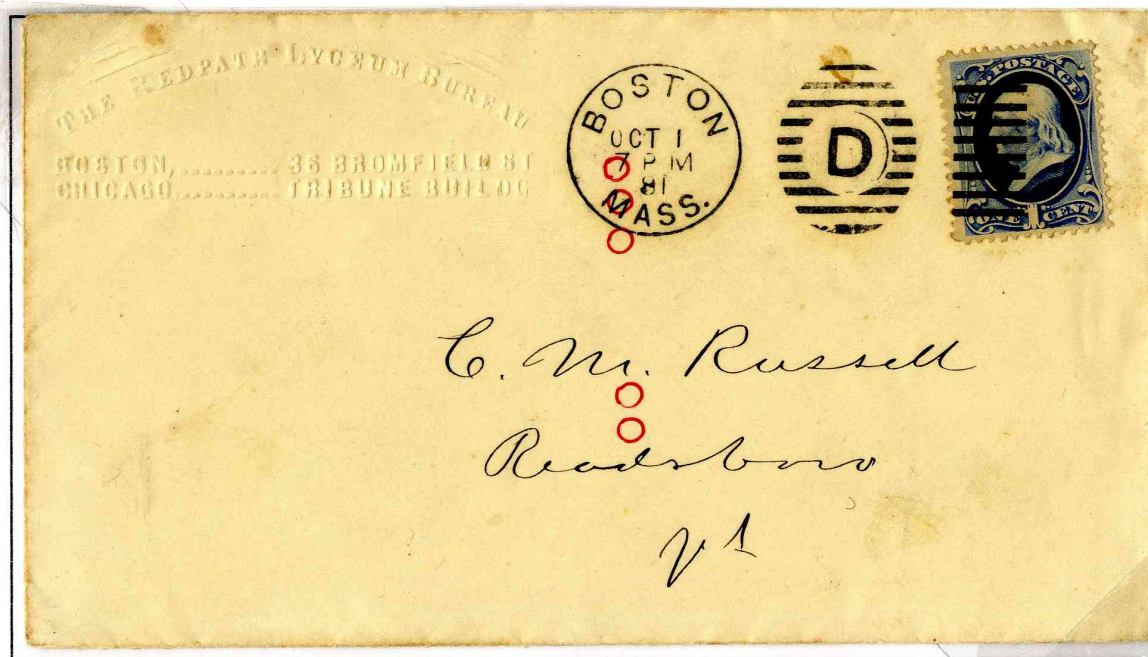 THE REDPATH LYCEUM BUREAU
BOSTON,.......... 36 BROMFIELD ST
CHICAGO.......... TRIBUNE BUILDG
BOSTON
OCT 1
7 PM
81
MASS.
D
U.S. POSTAGE
ONE 1 CENT
C. M. Russell
Readsboro
Vt